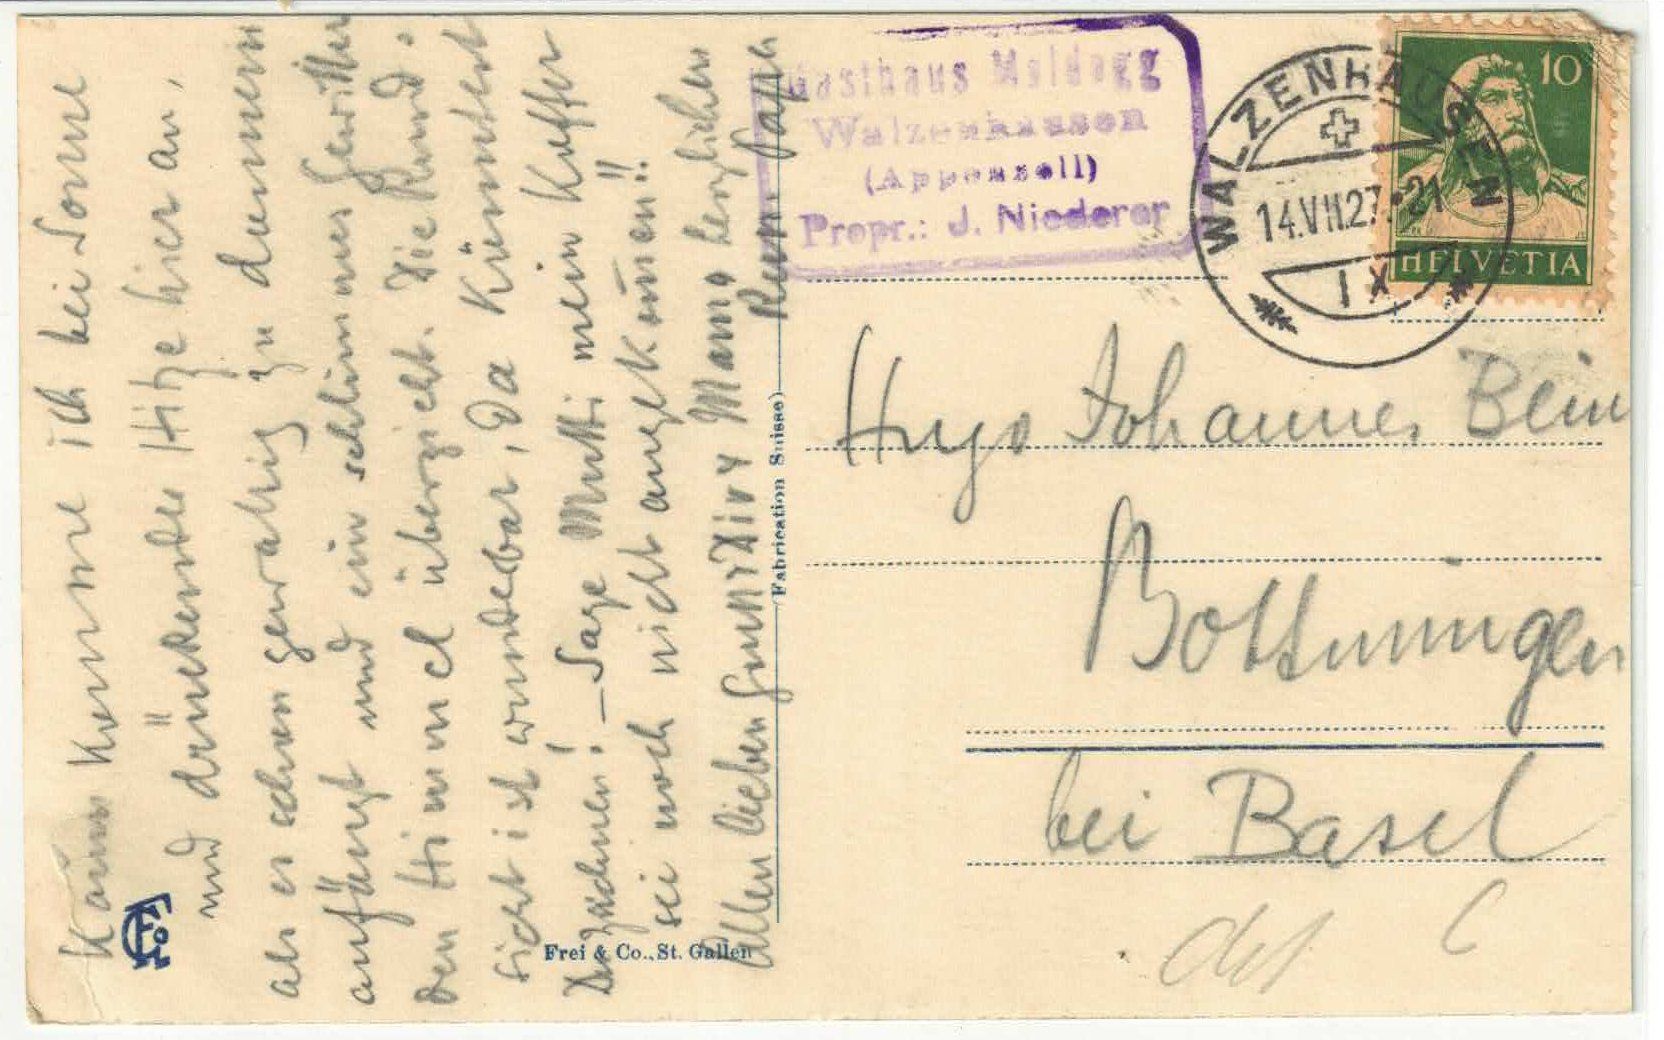 Kaum komme ich bei Sonne
und drückender Hitze hier an,
als es schon gewaltig zu donnern
anfängt und ein schlimmes Gewitter
den Himmel überzieht. Die Rund-
sicht ist wunderbar, da kümmert
Das Zeichnen! – Sage Mutti mein Koffer
sei noch nicht angekom̅en!!
Allen lieben Gruss Dir & Mama herzlichen
Papa
Frei & Co., St. Gallen
(Fabrication Suisse)
Gasthaus Meldegg
Walzenhausen
(Appenzell)
Propr.: J. Niederer
WALZENHAUSEN
14.VII.27.-21
IX
10
HELVETIA
Hugo Johannes Bein
Bottmingen
bei Basel